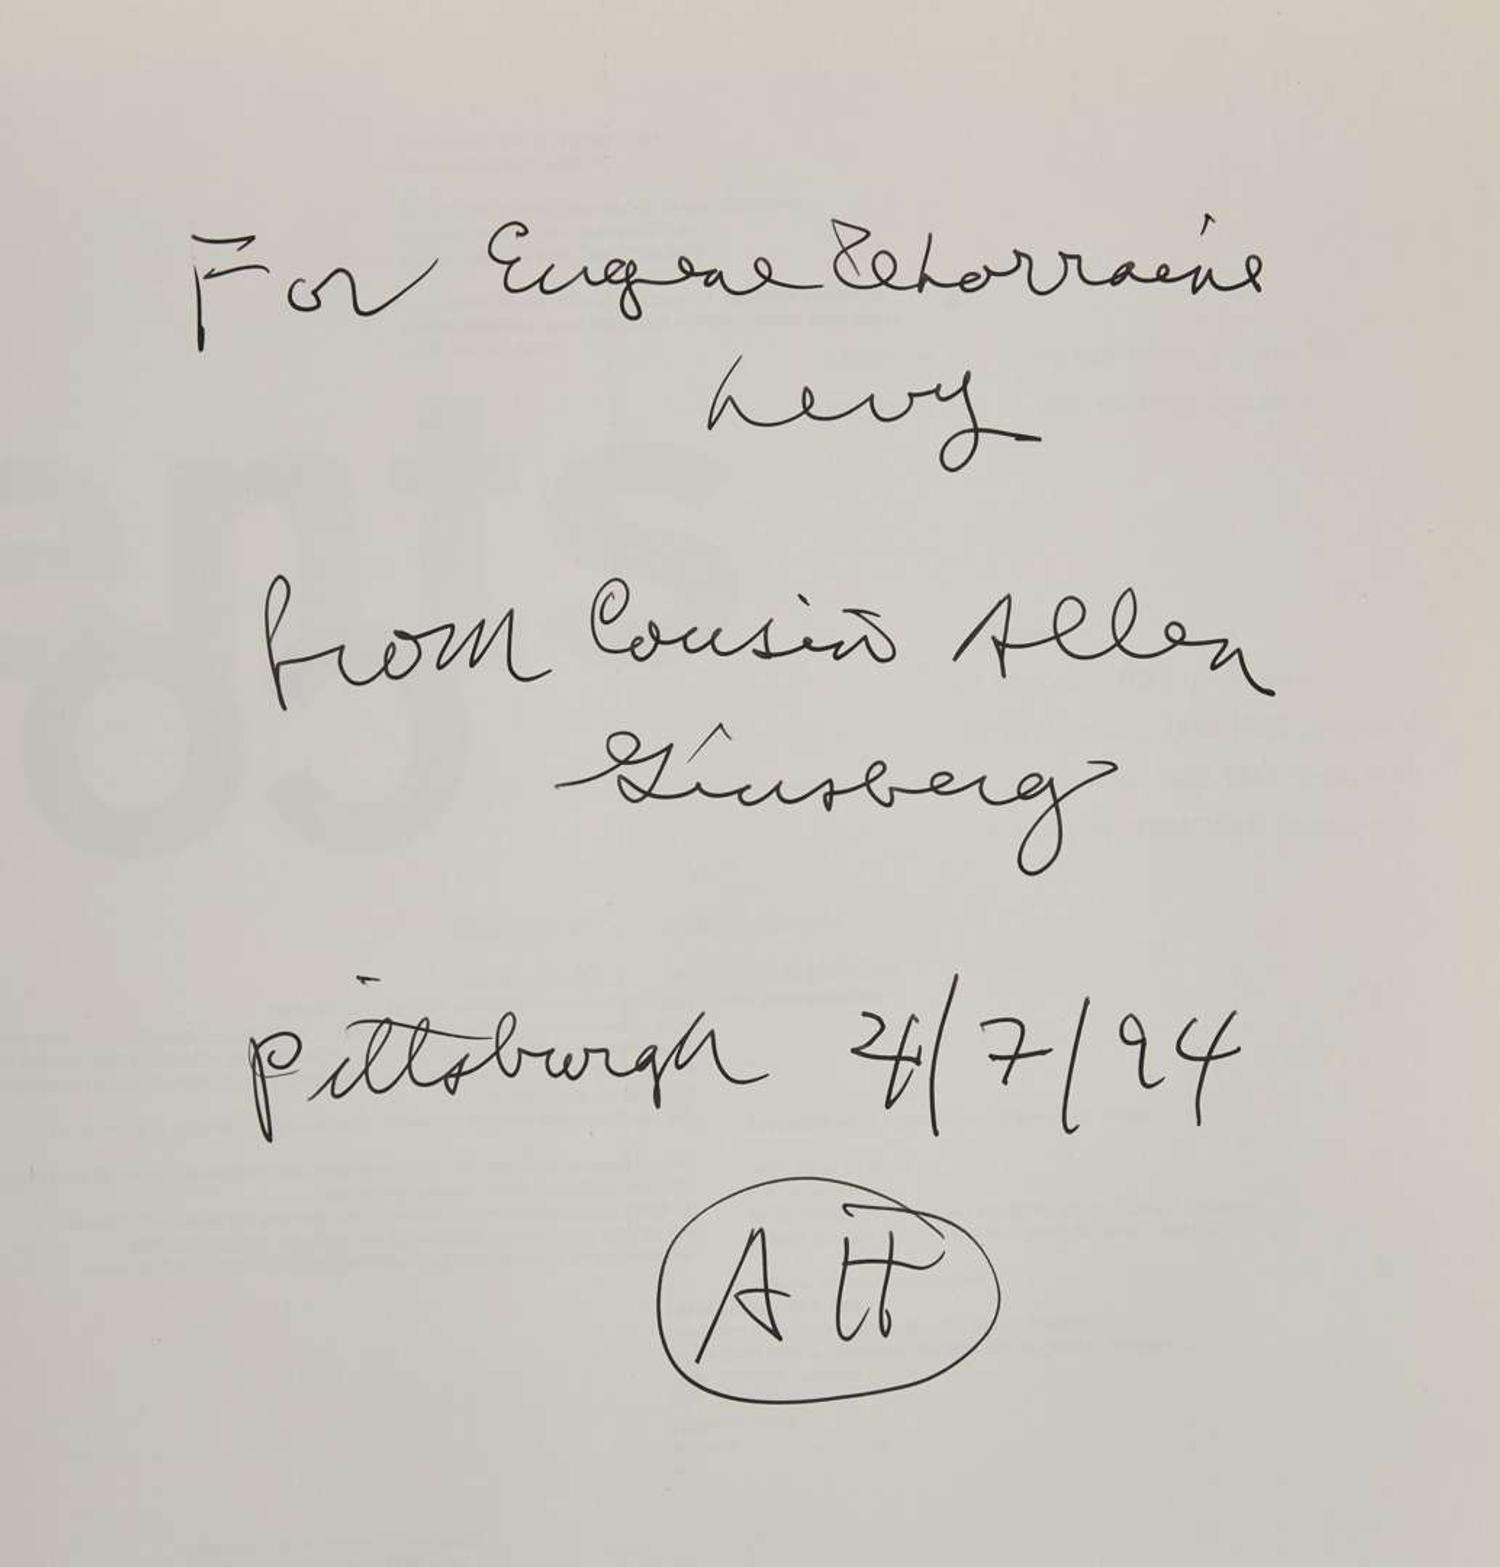 For Eugene & Lorraine
Levy
from Cousin Allen
Ginsberg
Pittsburgh 4/7/94
AH